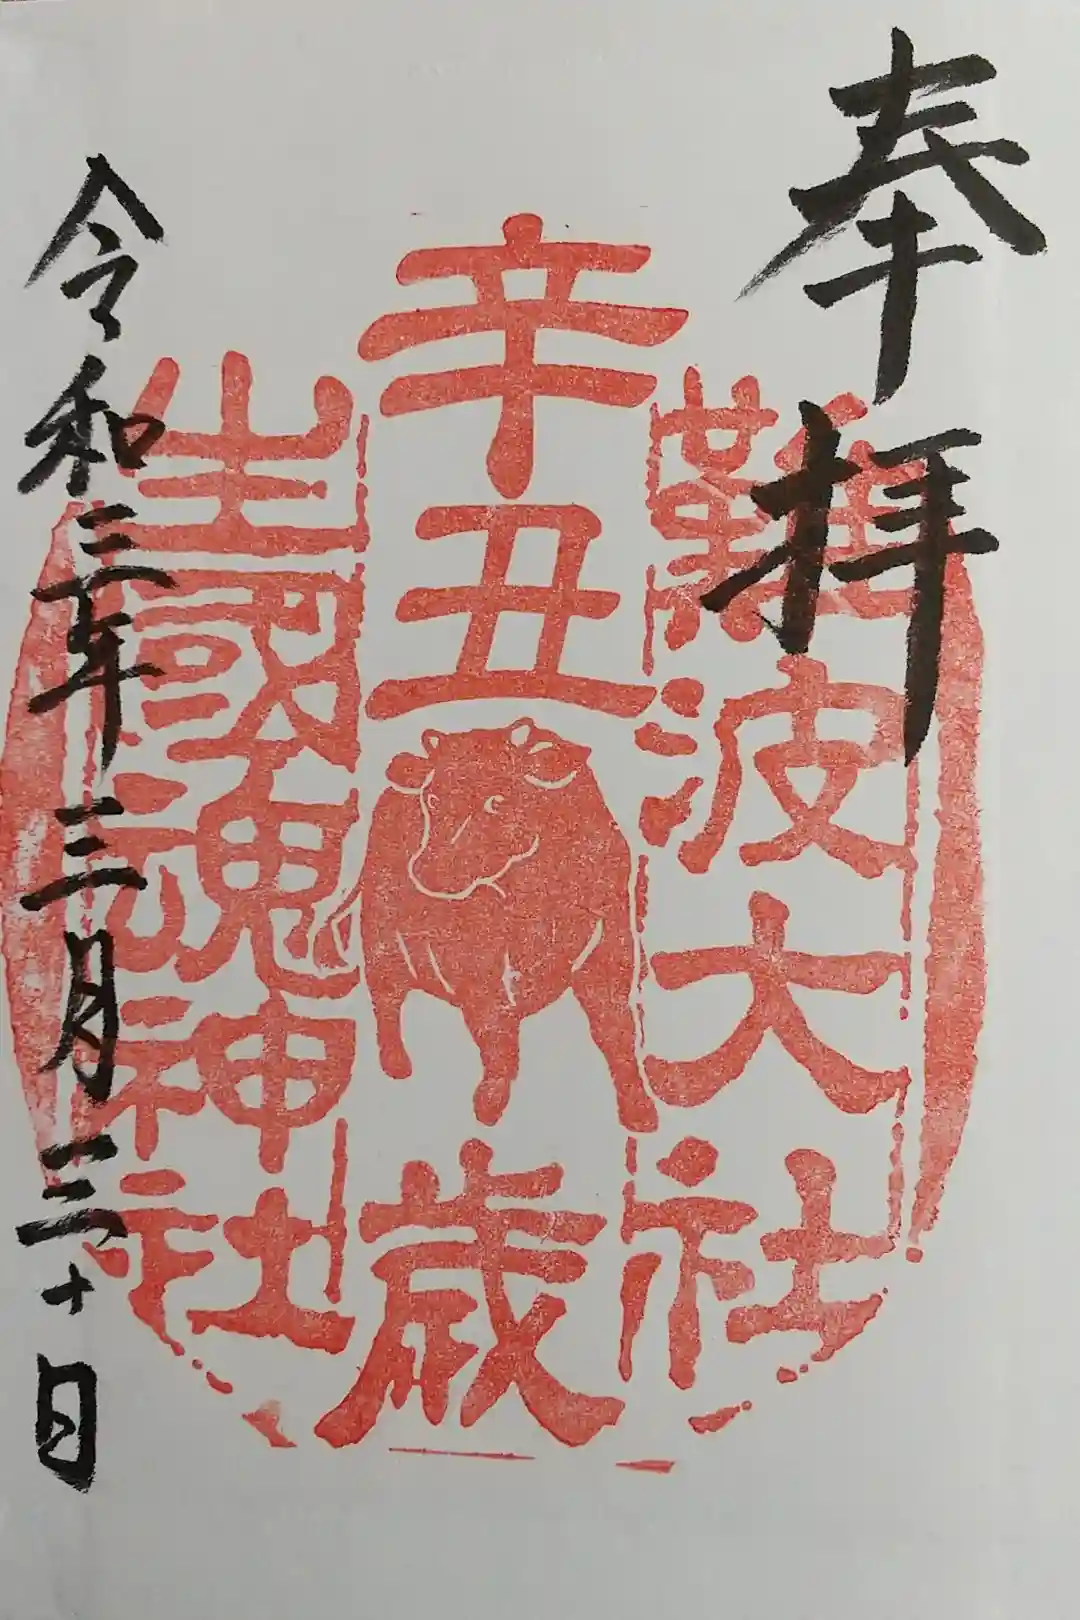 奉拝
難波大社
辛丑歳
生國魂神社
令和三年三月三十日